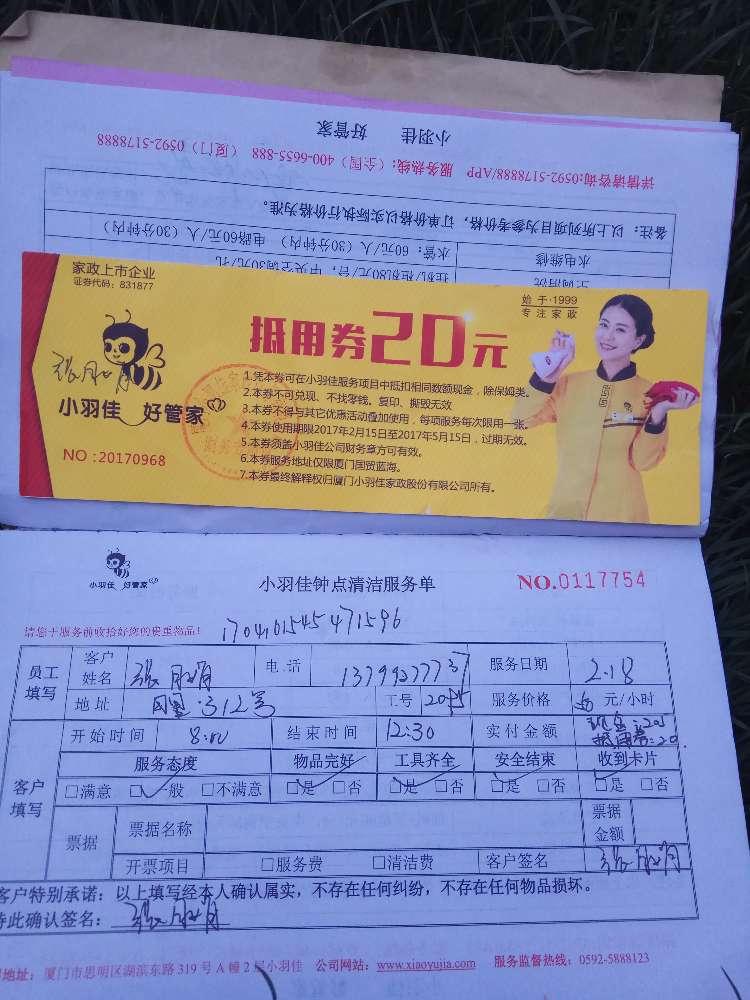 小羽佳 好管家
详情请咨询:0592-5178888/APP 服务热线:(全国) 400-6655-888 (厦门) 0592-5178888
备注：以上所列项目为参考价格，订单价格以实际执行价格为准。
水电维修 水管：60元/人 (30分钟内) 电路60元/人 (30分钟内)
空调清洗 挂机/柜机80元/台，中央空调30元/孔
家政上市企业
证券代码：831877
始于·1999
专注家政
抵用券20元
1.凭本券可在小羽佳服务项目中抵扣相同数额现金，除保姆类。
2.本券不可兑现、不找零钱。复印、撕毁无效
3.本券不得与其它优惠活动叠加使用，每项服务每次限用一张。
4.本券使用期限2017年2月15日至2017年5月15日，过期无效。
5.本券须盖小羽佳公司财务章方可有效。
6.本券服务地址仅限厦门国贸蓝海。
7.本券最终解释权归厦门小羽佳家政股份有限公司所有。
小羽佳 好管家
NO：20170968
小羽佳 好管家
小羽佳钟点清洁服务单
NO.0117754
请您于服务前收拾好您的贵重物品！
员工填写 客户姓名 张 电话 服务日期 2.18
地址 312号 工号 服务价格 元/小时
开始时间 8:00 结束时间 12:30 实付金额 现金:205
抵用券:20
客户填写 服务态度 物品完好 工具齐全 安全结束 收到卡片
□满意 □一般 □不满意 □是 □否 □是 □否 □是 □否 □是 □否
票据 票据名称 票据金额
开票项目 □服务费 □清洁费 客户签名 张
客户特别承诺：以上填写经本人确认属实，不存在任何纠纷，不存在任何物品损坏。
特此确认签名： 张
地址：厦门市思明区湖滨东路319号A幢2层小羽佳 公司网站：www.xiaoyujia.com 服务监督热线：0592-5888123